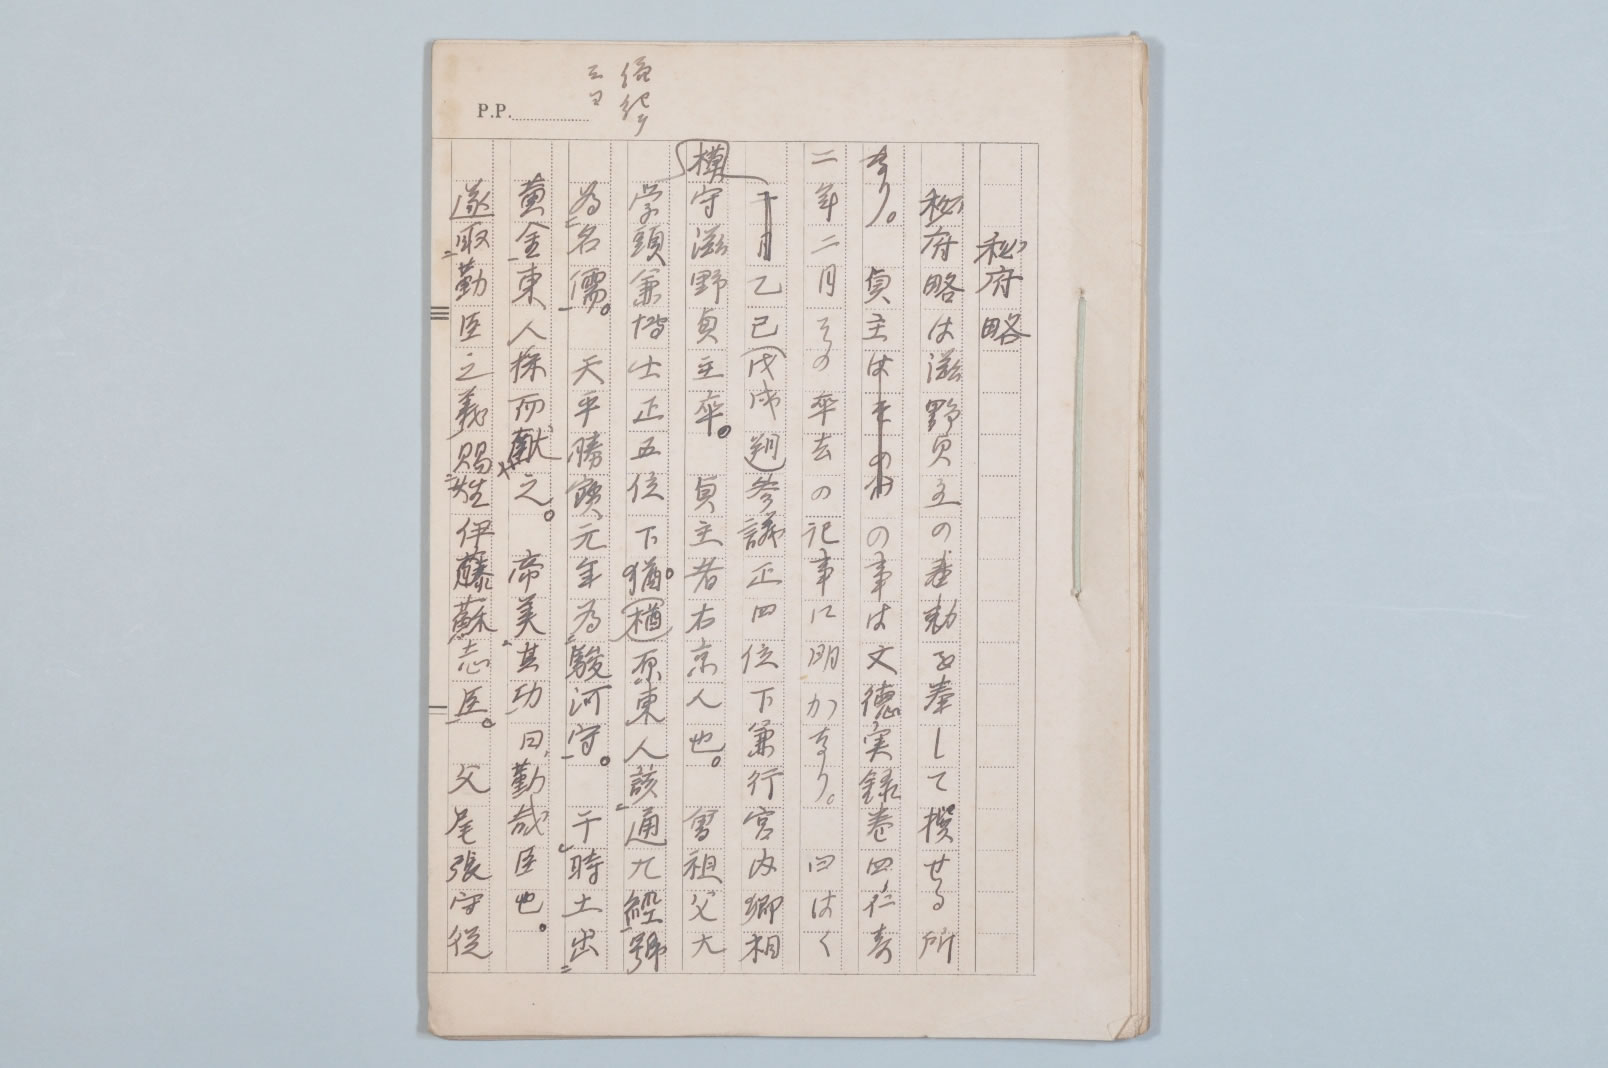 秘府略
秘府略は滋野貞主の恚勅を奉して撰せる所
なり。貞主はの事は文徳実録巻四、仁寿
二年二月その卒去の記事に明かなり。曰はく
乙巳(戊戌朔)参議正四位下兼行宮内卿相
模守滋野貞主卒。貞主者右京人也。曽祖父大
学頭兼博士正五位下猶(楢)原東人該通九経號
為名儒。天平勝寳元年為駿河守。于時土出
黄金東人採而献之。帝美其功曰、勤哉臣也。
遂取勤臣之義賜姓伊蘇志臣。父尾張守従
P.P.